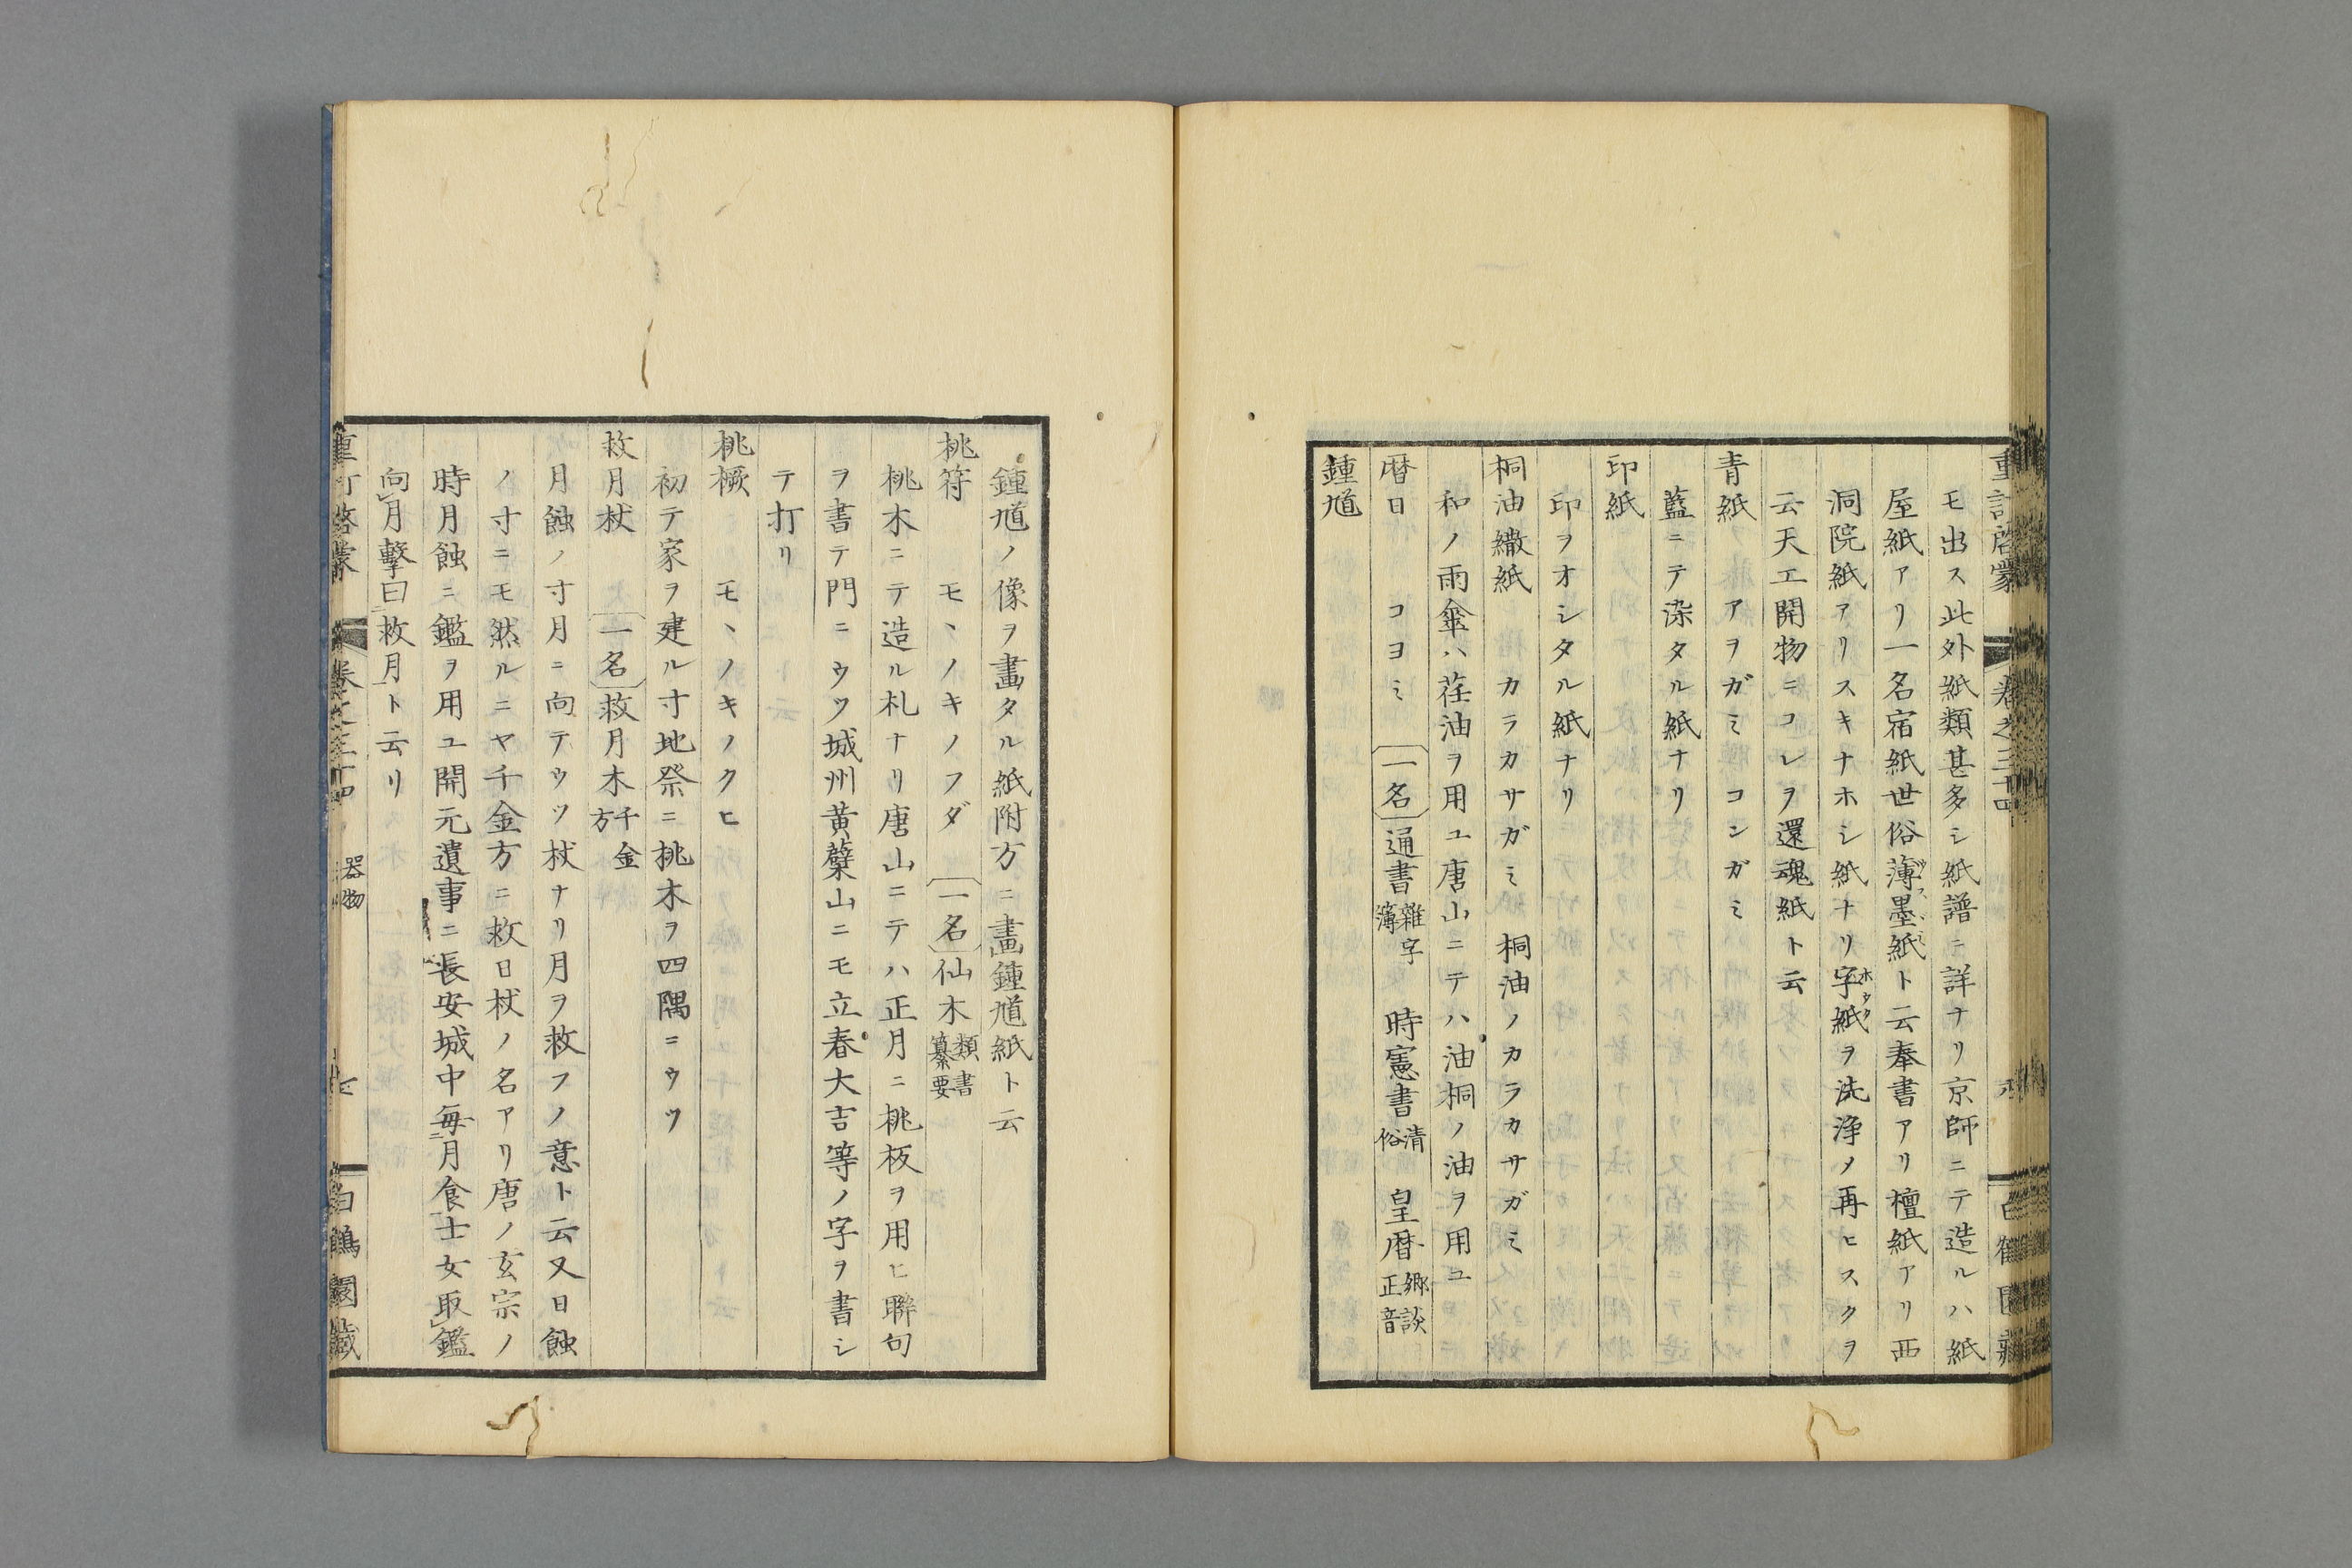 モ出ス此外紙類甚多シ紙譜ニ詳ナリ京師ニテ造ルハ紙
屋紙アリ一名宿紙世俗薄墨紙ト云奉書アリ檀紙アリ西
洞院紙アリスキナホシ紙ナリ字紙ヲ洗浄メ再ヒスクヲ
云天工開物ニコレヲ還魂紙ト云
青紙 アヲガミ コンガミ
藍ニテ染タル紙ナリ
印紙
印ヲオシタル紙ナリ
桐油繖紙 カラカサガミ 桐油ノカラカサガミ
和ノ雨傘ハ荏油ヲ用ユ唐山ニテハ油桐ノ油ヲ用ユ
暦日 コヨミ 一名 通書 雜字簿 時憲書 清俗 皇暦 鄉談正音
鍾馗
鍾馗ノ像ヲ畫タル紙附方ニ畫鍾馗紙ト云
桃符 モヽノキノフダ 一名 仙木 類書纂要
桃木ニテ造ル札ナリ唐山ニテハ正月ニ桃板ヲ用ヒ聯句
ヲ書テ門ニウツ城州黄蘗山ニモ立春大吉等ノ字ヲ書シ
テ打リ
桃橛 モヽノキノクヒ
初テ家ヲ建ル寸地祭ニ桃木ヲ四隅ニウツ
救月杖 一名 救月木 千金方
月蝕ノ寸月ニ向テウツ杖ナリ月ヲ救フノ意ト云又日蝕
ノ寸ニモ然ルニヤ千金方ニ救日杖ノ名アリ唐ノ玄宗ノ
時月蝕ニ鑑ヲ用ユ開元遺事ニ長安城中毎月食士女取鑑
向月擊曰救月ト云リ
器物